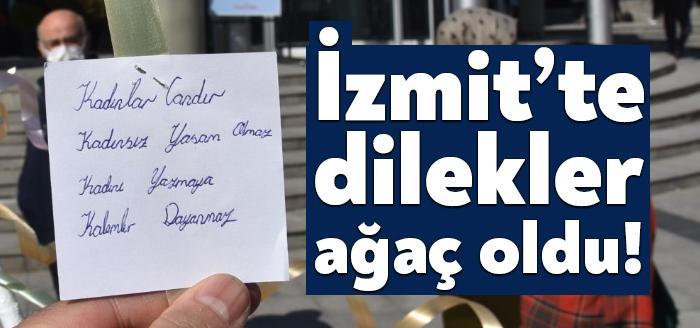 Kadınlar Candır
Kadınsız Yaşam Olmaz
Kadını Yazmaya
Kalemler Dayanmaz
İzmit'te
dilekler
ağaç oldu!